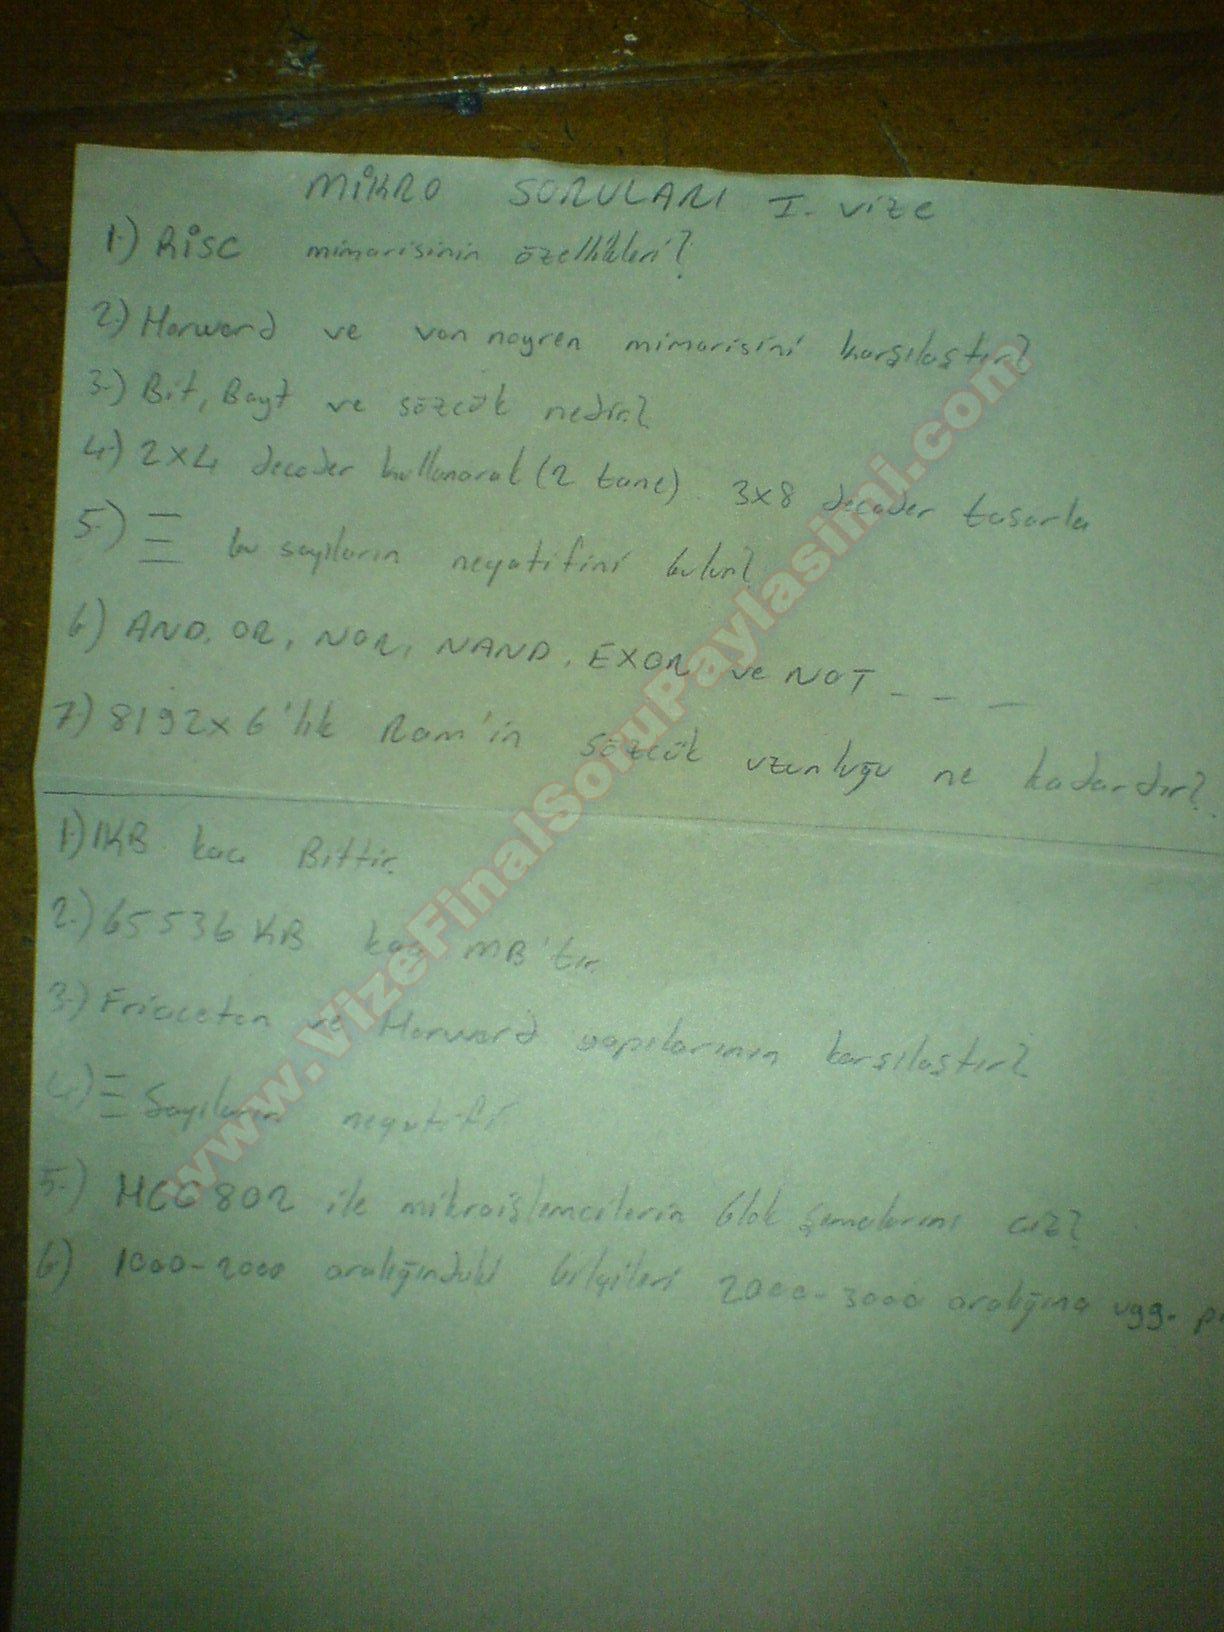 MİKRO SORULARI I. vize
1-) RİSC mimarisinin özellikleri?
2-) Harward ve von noyren mimarisini karşılaştır?
3-) Bit, Bayt ve sözcük nedir?
4-) 2x4 decoder kullanarak (2 tane) 3x8 decoder tasarla
5-) bu sayıların negatifini bulun?
6) AND, OR, NOR, NAND, EXOR ve NOT _ _ _
7-) 8192x6'lık Ram'in sözcük uzunluğu ne kadardır?
1-) 1KB kaç Bittir.
2-) 65536 KB kaç MB'tır
3-) ve Harward yapılarının karşılaştır?
4-) Sayıların negatifi
5-) ile mikroişlemcilerin blok şemalarını çiz?
6) 1000-2000 aralığındaki bilgileri 2000-3000 aralığına
www.VizeFinalSoruPaylasimi.com